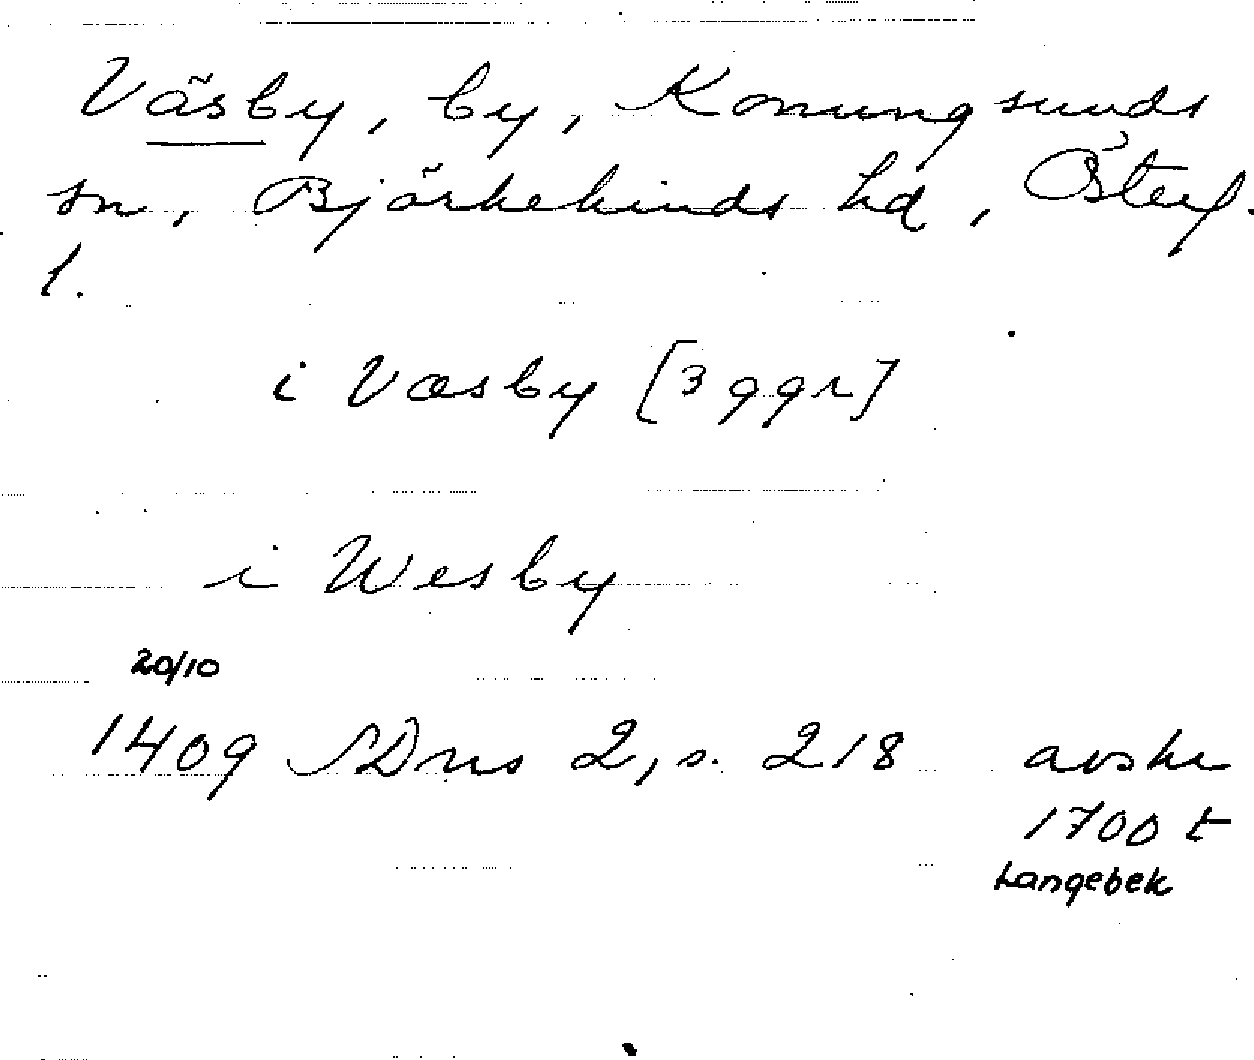 Väsby, by, Konungsunds
sn, Björkekinds hd, Österg.
l.
i Væsby [3 ggr]
i Wesby
20/10
1409 SDns 2, s. 218 avskr
1700 t
Langebek